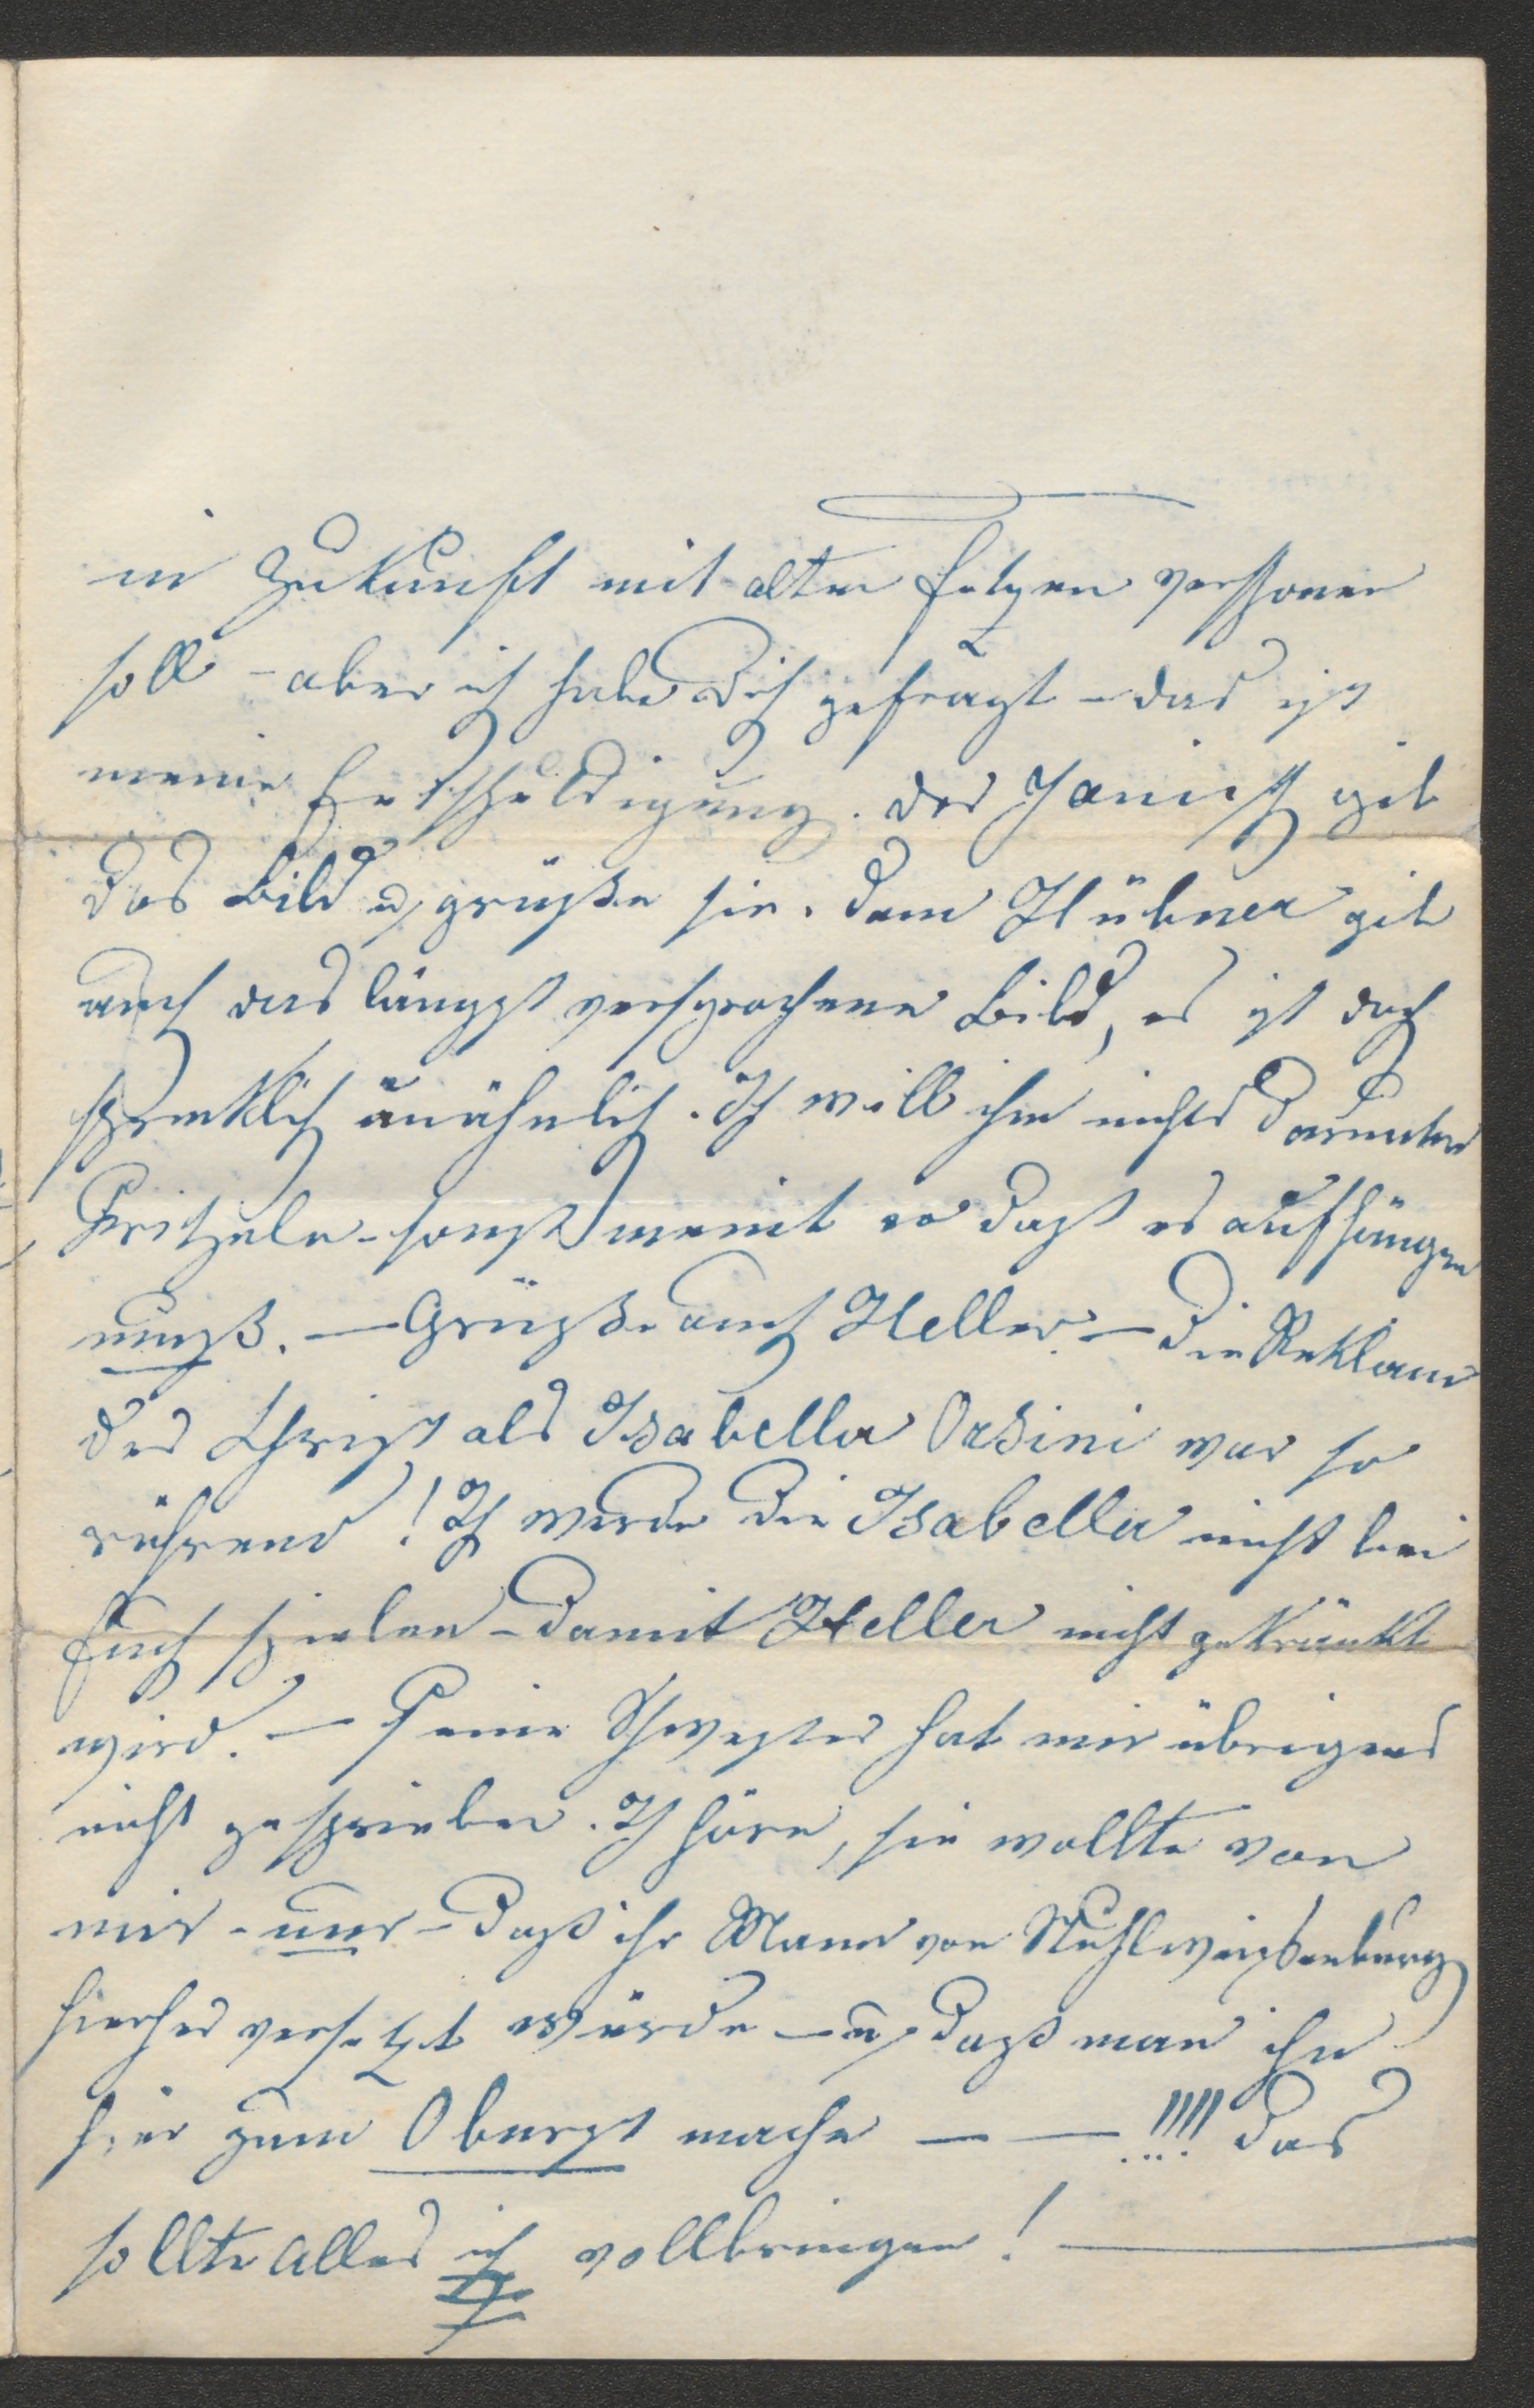 in Zukunft mit alten Fetzen verschonen
soll – aber ich habe Dich gefragt – das ist
meine Entschuldigung. Der Janisch gib
das Bild u. grüße sie. Dem Hübner gib
auch das längst versprochene Bild, es ist doch
schrecklich unähnlich. Ich will ihm nichts darunter
Kritzeln – sonst meint er daß er es aufhängen
muß. – Grüße auch Heller – Die Reklame
der Christ als Isabella Orsini war so
rührend! Ich werde die Isabella nicht bei
Euch spielen – damit Heller nicht gekränkt
wird. – Seine Schwester hat mir übrigens
nicht geschrieben. Ich höre, sie wollte von
mir – nur – daß ihr Mann von Stuhlweißenburg
hierher versetzt würde – u. daß man ihn
hier zum Oberst mache — — !!!! Das
sollte Alles ich vollbringen! —